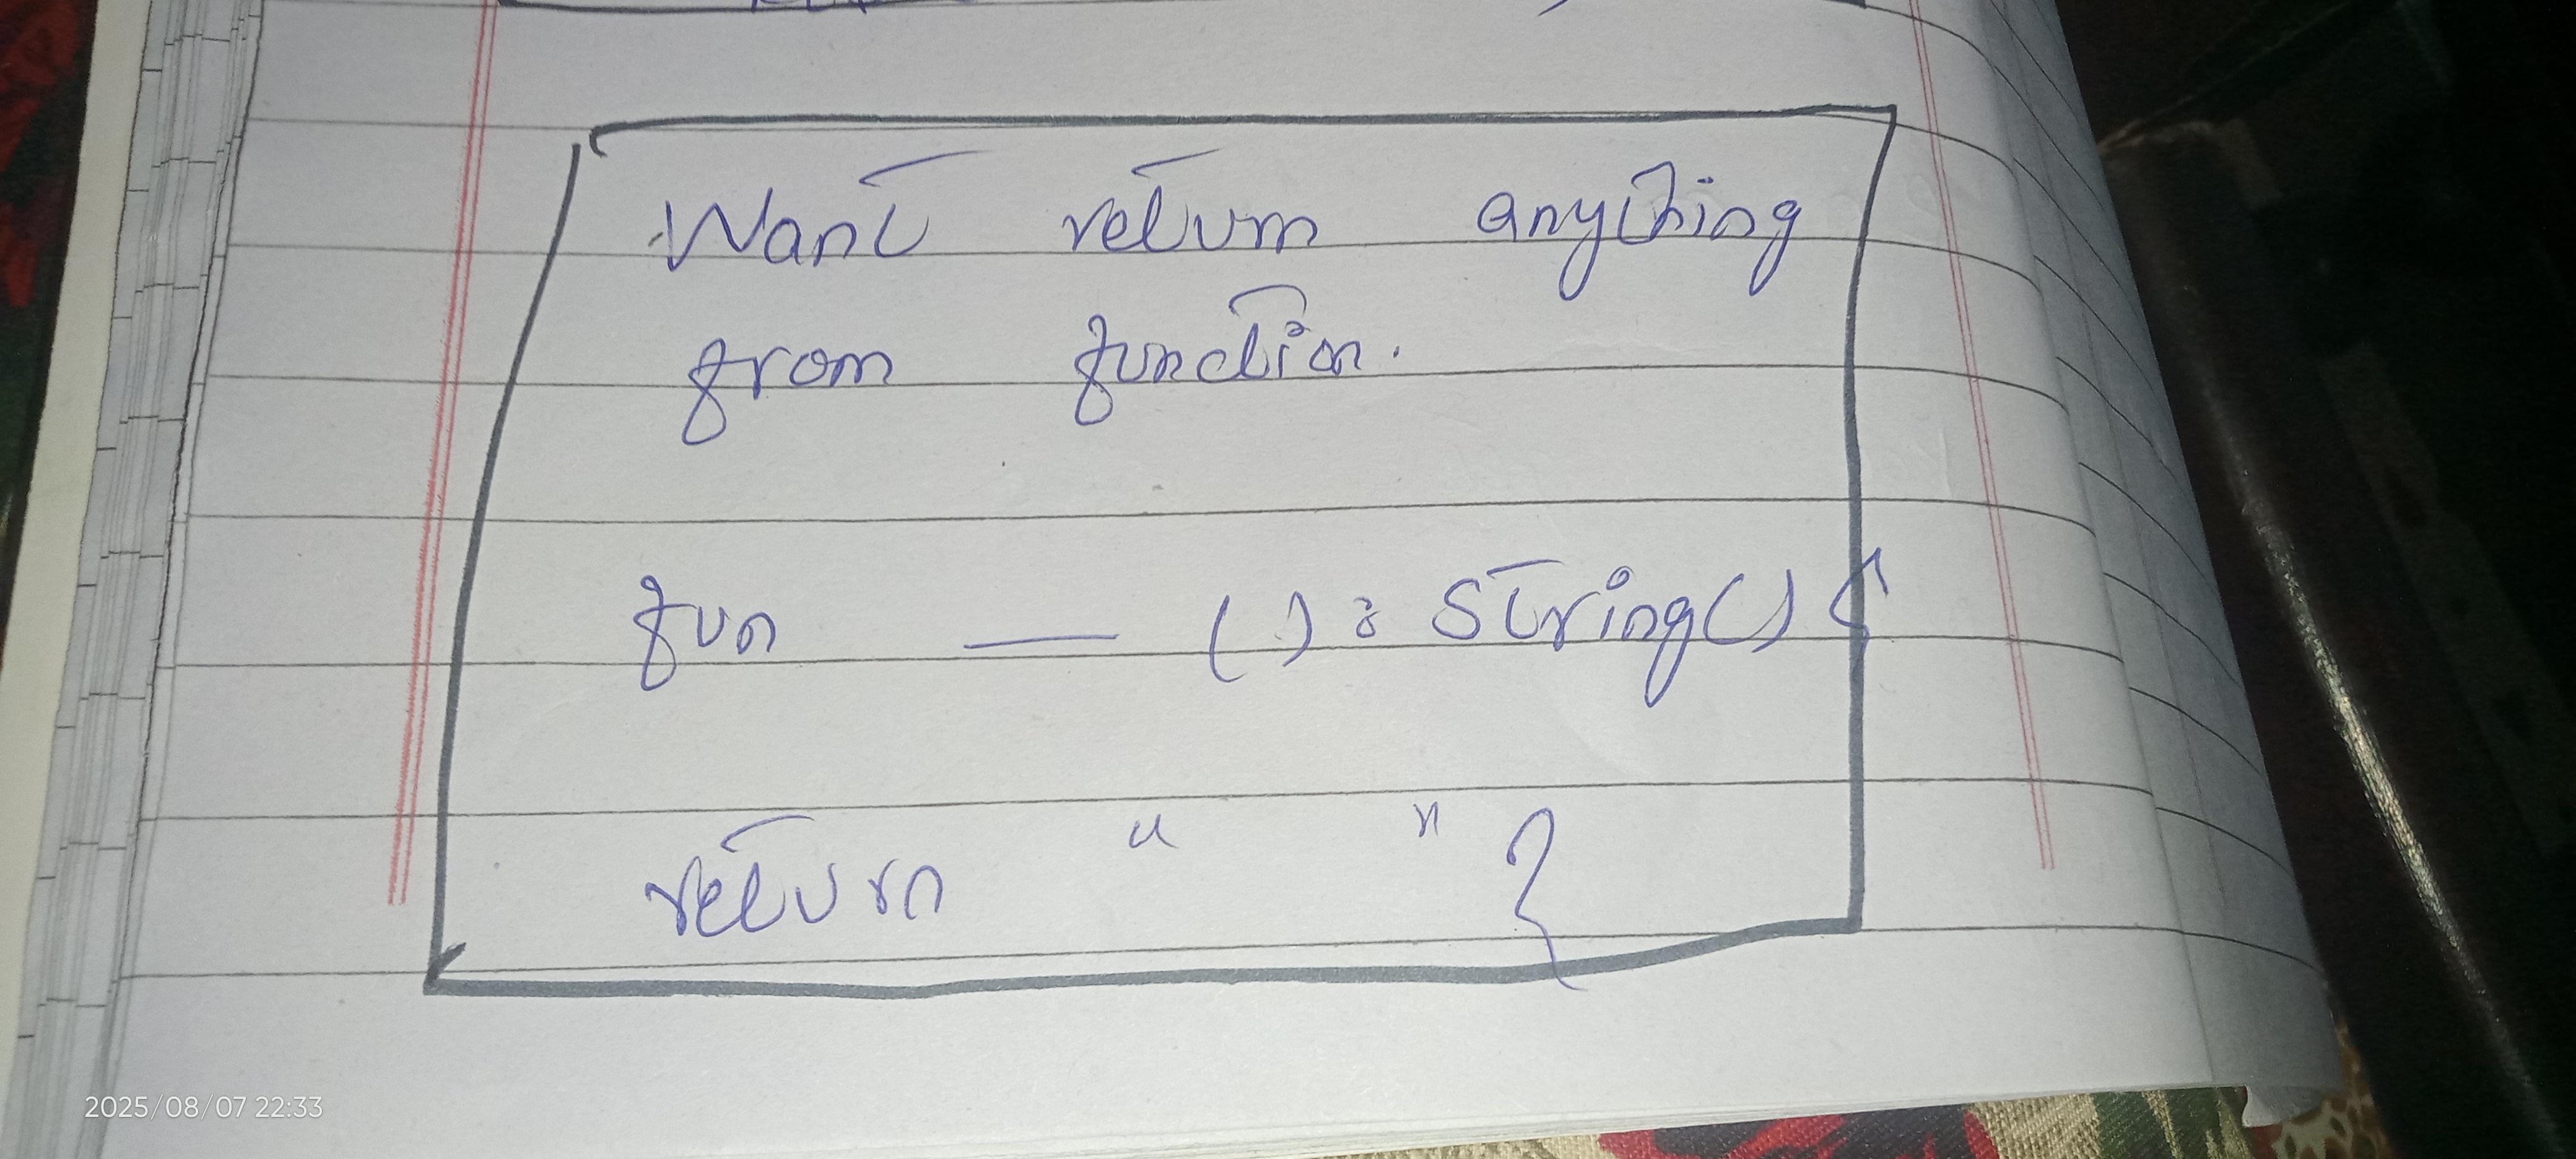 Want return anything
from function.
fun — ( ) : String() {
return " " }
2025/08/07 22:33